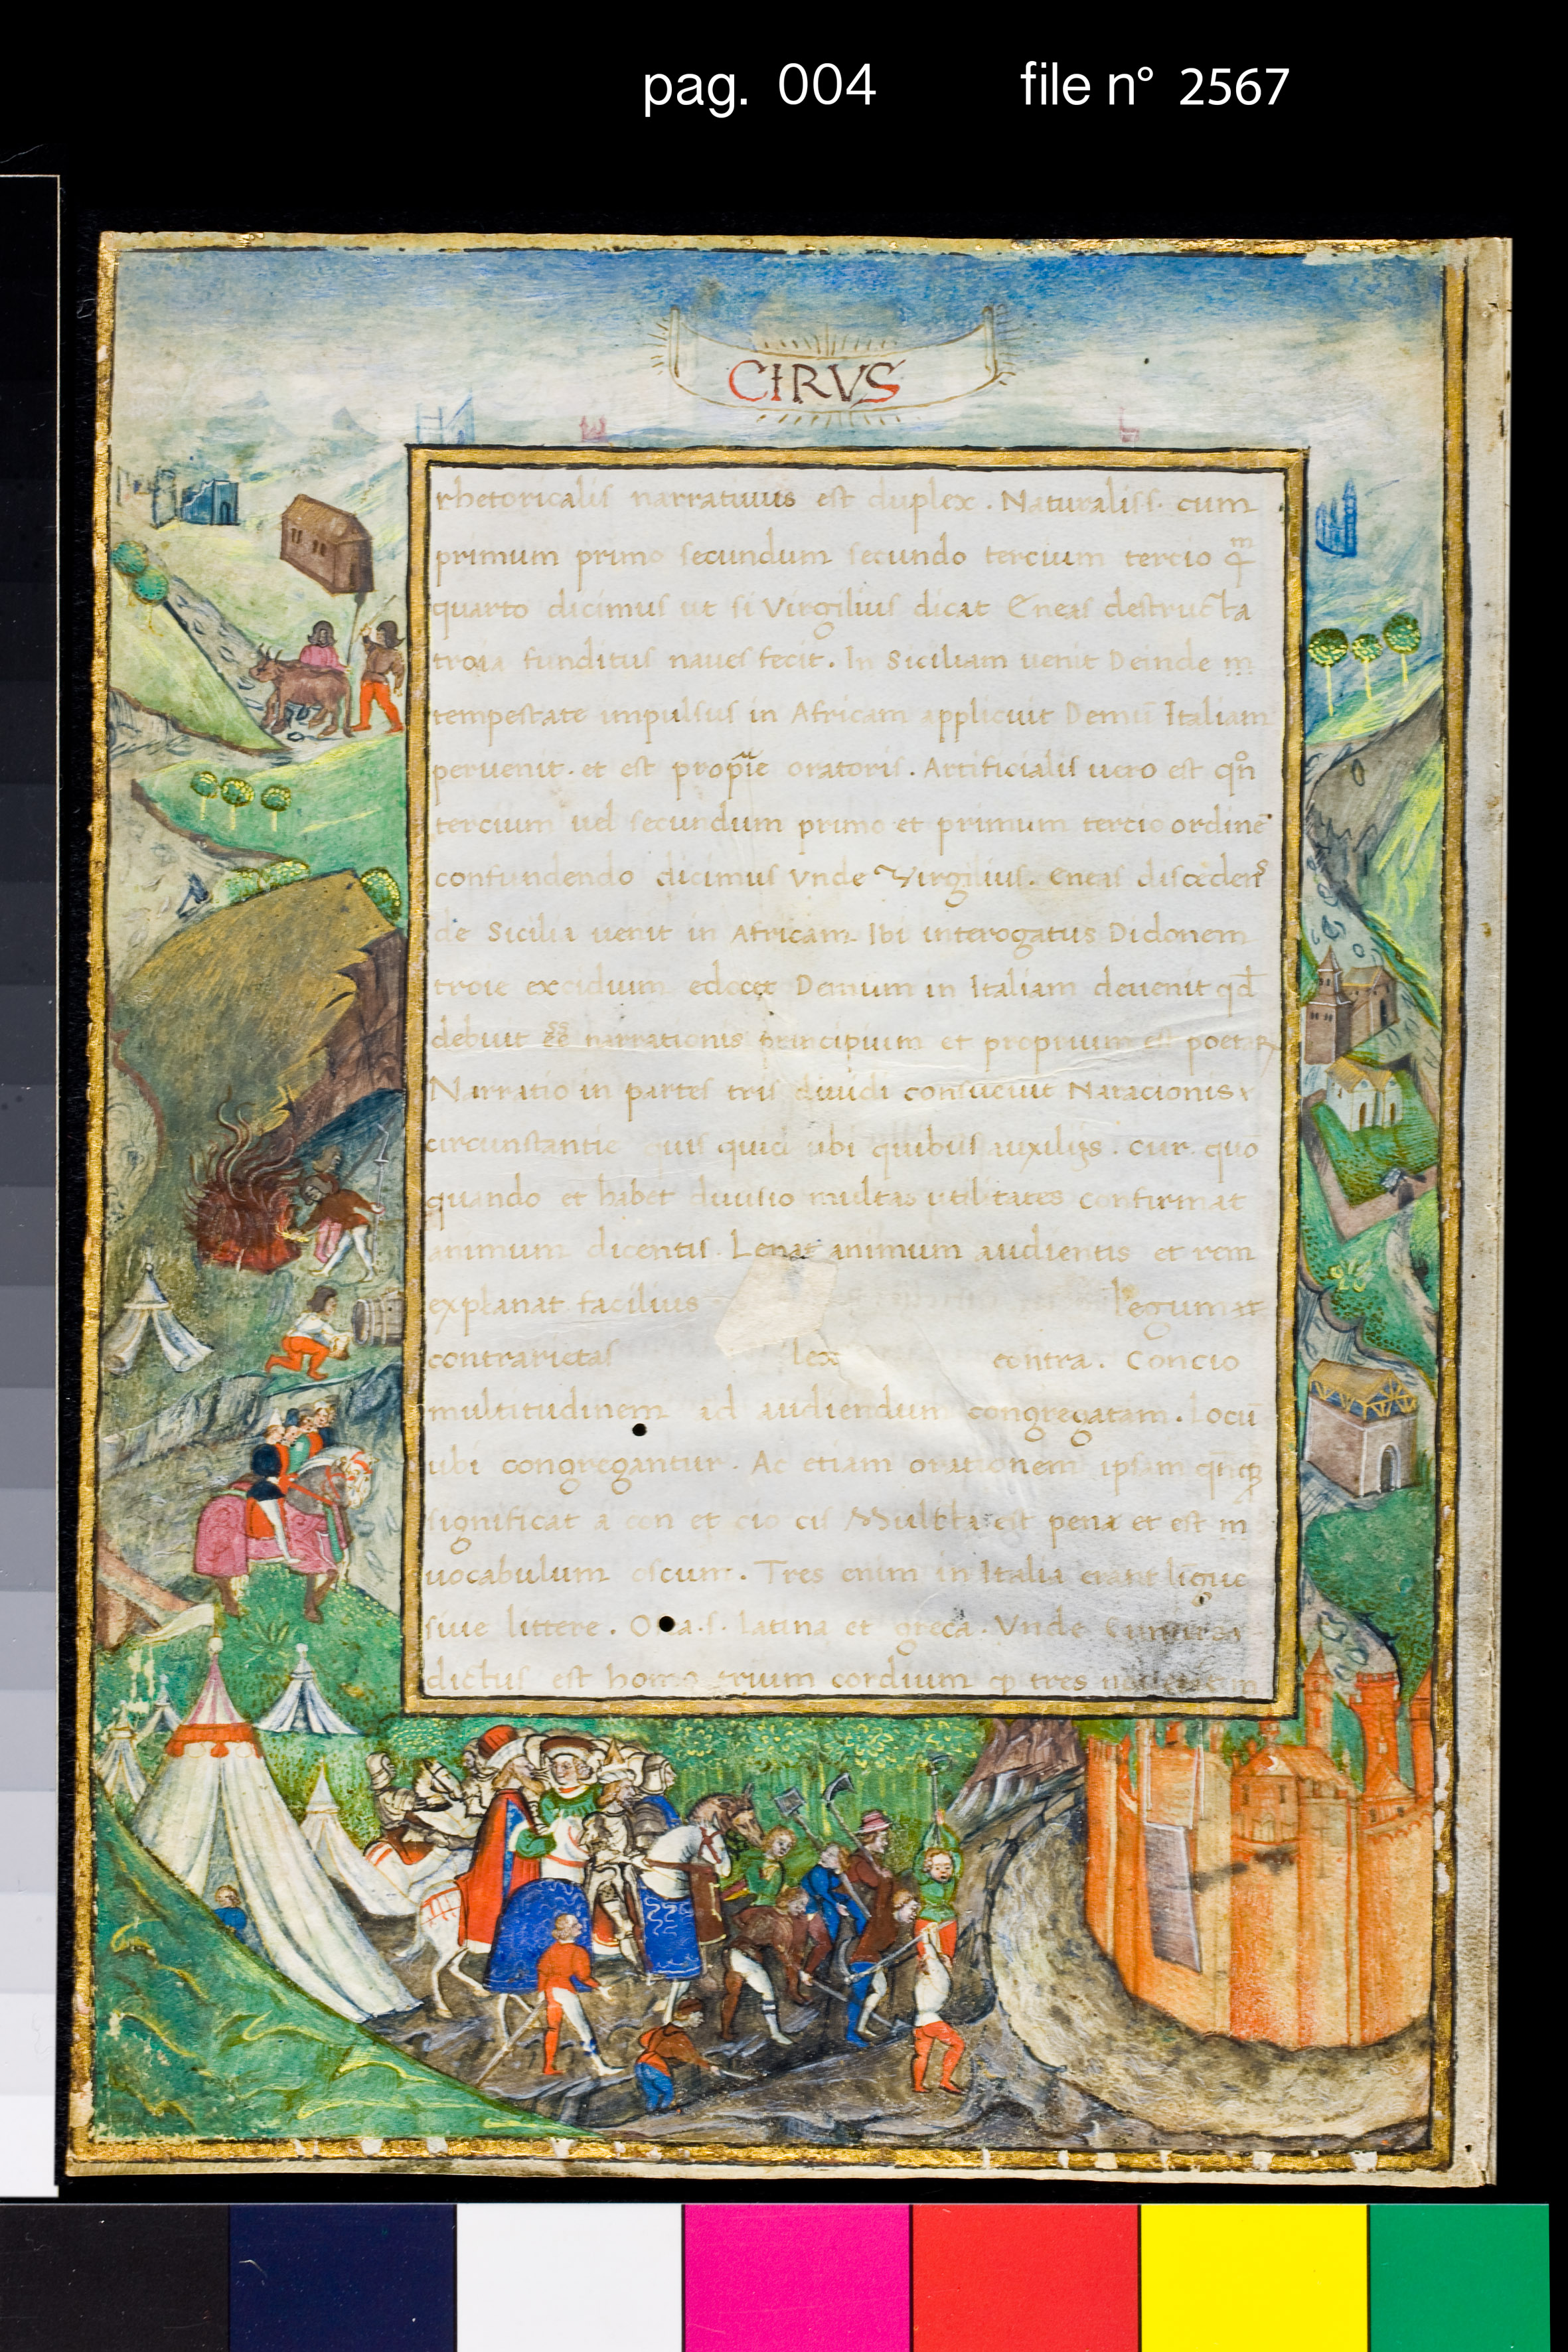 pag. 004 file n° 2567
CIRVS
rhetoricalis narratiuus est duplex. Naturalis s. cum
primum primo secundum secundo tercium tercio q̄
quarto dicimus ut si Virgilius dicat Eneas destructa
troia funditus naues fecit. In Siciliam uenit Deinde
tempestate impulsus in Africam applicuit Demū Italiam
peruenit. et est propīe oratoris. Artificialis uero est qn̄
tercium uel secundum primo et primum tercio ordinē
confundendo dicimus Vnde Virgilius. Eneas disceden̄s
de Sicilia uenit in Africam Ibi interogatus Didonem
troie excidium edocet Demum in Italiam deuenit qd̄
debuit eē narrationis principium et proprium est poetaꝝ
Narratio in partes tris diuidi consueuit Naracionis
circunstantie quis quid ubi quibus auxiliis. cur. quō
quando et habet diuisio multas utilitates confirmat
animum dicentis. Leuat animum audientis et rem
explanat facilius legum
contrarietas lex contra. Concio
multitudinem ad audiendum congregatam. Locū
ubi congregantur. Ac etiam orationem ipsam
significat a con et cio cis Multa est pena et est
uocabulum oscum. Tres enim in Italia erant
siue littere. latina et greca. Vnde
dictus est homo trium cordium tres